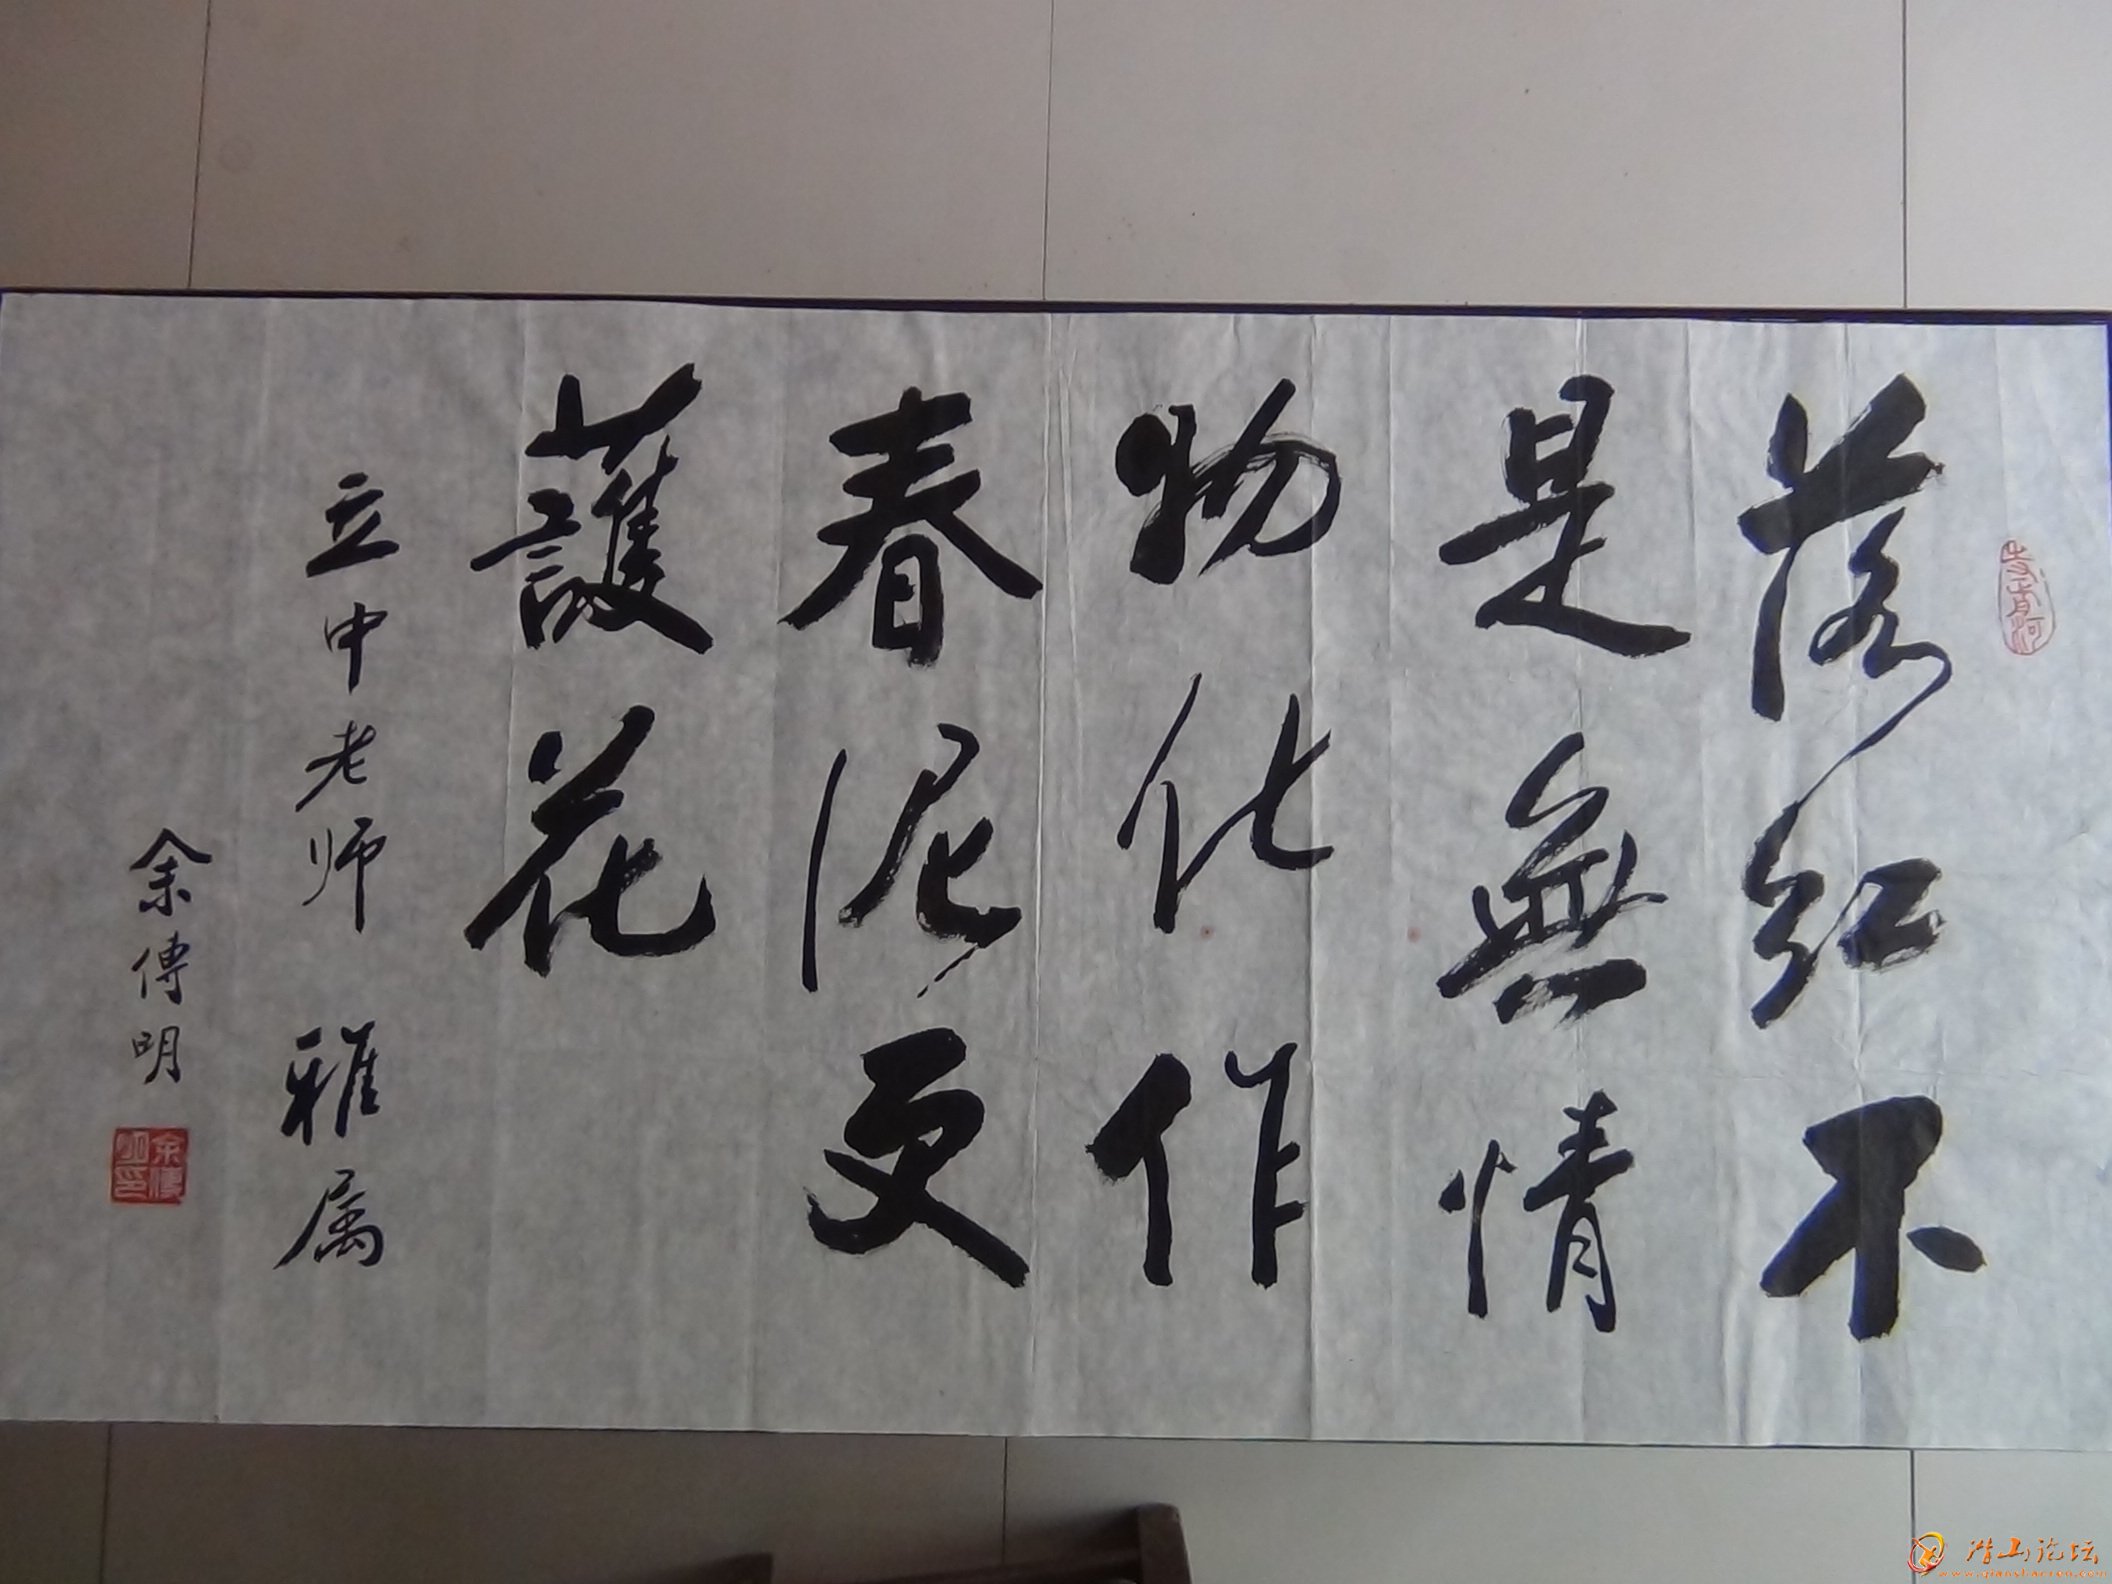 落红不
是無情
物化作
春泥更
護花
立中老师 雅属
余傳明
潜山论坛